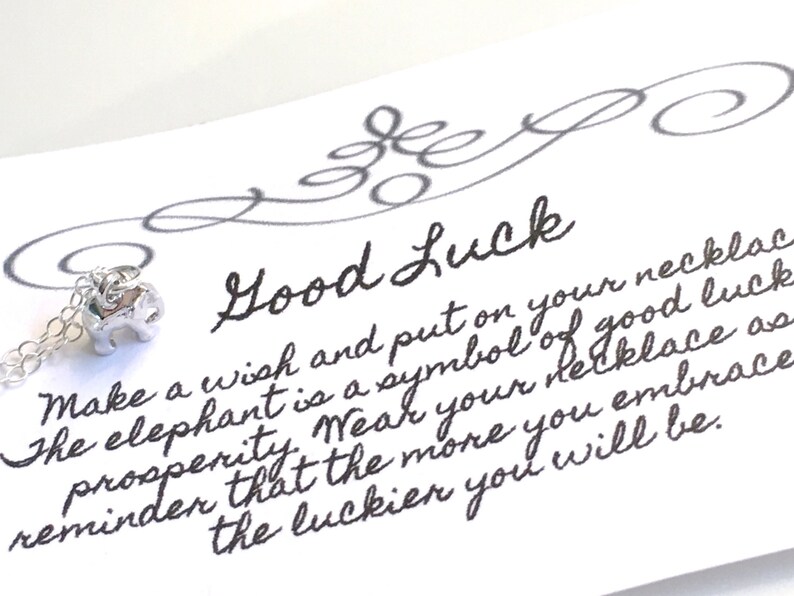 Good Luck
Make a wish and put on your necklac
The elephant is a symbol of good luck
prosperity. Wear your necklace as
reminder that the more you embrace
the luckier you will be.